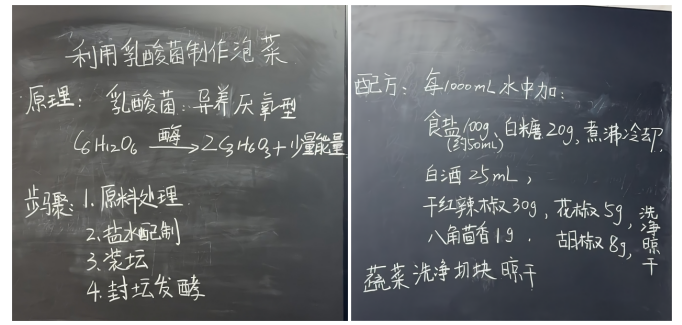 利用乳酸菌制作泡菜
原理：乳酸菌：异养厌氧型
C6H12O6 酶→ 2C3H6O3+少量能量
步骤：1. 原料处理
2. 盐水配制
3. 装坛
4. 封坛发酵
配方：每1000mL水中加：
食盐100g、白糖20g，煮沸冷却，
(约50mL)
白酒25mL，
干红辣椒30g，花椒5g，
八角茴香1g．胡椒8g，
洗净晾干
蔬菜洗净切块晾干